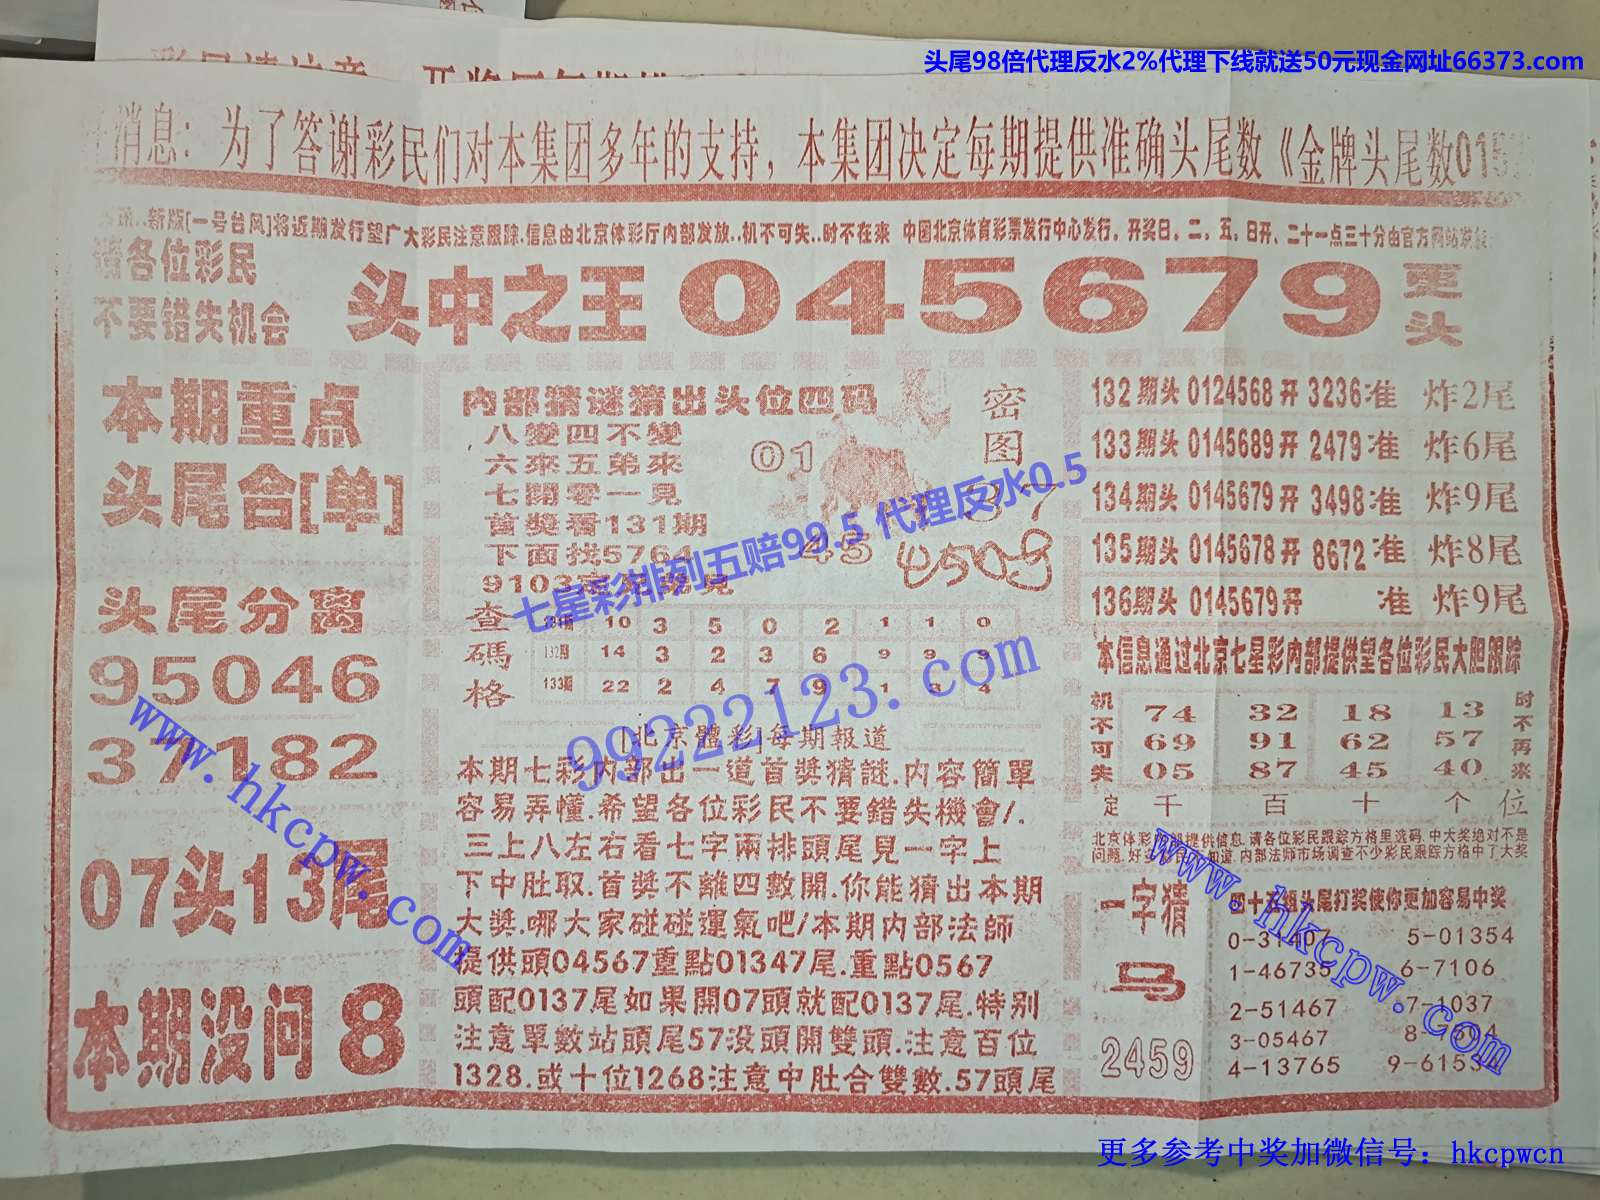 头尾98倍代理反水2%代理下线就送50元现金网址66373.com
消息：为了答谢彩民们对本集团多年的支持，本集团决定每期提供准确头尾数《金牌头尾数015
新版[一号台风]将近期发行望广大彩民注意跟踪.信息由北京体彩厅内部发放..机不可失..时不在来 中国北京体育彩票发行中心发行，开奖日，二，五，日开、二十一点三十分由官方网站发
请各位彩民
不要错失机会
头中之王045679更头
本期重点
头尾合[单]
头尾分离
95046
37182
07头13尾
本期没问8
内部猜谜猜出头位四码
八變四不變
六來五弟來
七開零一見
首獎看131期
下面找5764
9103
01
密图
45
4508
查碼格
10 3 5 0 2 1 1 0
132期 14 3 2 3 6 9 9 9
133期 22 2 4 7 9 1 3 4
[北京體彩]每期報道
本期七彩内部出一道首獎猜謎.内容簡單
容易弄懂.希望各位彩民不要錯失機會/.
三上八左右看七字兩排頭尾見一字上
下中肚取.首獎不離四數開.你能猜出本期
大獎.哪大家碰碰運氣吧/本期内部法師
提供頭04567重點01347尾.重點0567
頭配0137尾如果開07頭就配0137尾.特别
注意單數站頭尾57没頭開雙頭.注意百位
1328.或十位1268注意中肚合雙數.57頭尾
132期头0124568开3236准 炸2尾
133期头0145689开2479准 炸6尾
134期头0145679开3498准 炸9尾
135期头0145678开8672准 炸8尾
136期头0145679开 准 炸9尾
本信息通过北京七星彩内部提供望各位彩民大胆跟踪
机不可失
74 32 18 13
69 91 62 57
05 87 45 40
时不再来
定 千 百 十 个 位
北京体彩 提供信息.请各位彩民跟踪方格里选码.中大奖绝对不是
问题.好 知道.内部法师市场调查不少彩民跟踪方格中了大奖
一字猜
马
2459
头尾打奖使你更加容易中奖
0-31407 5-01354
1-46735 6-7106
2-51467 7-1037
3-05467
4-13765 9-6153
七星彩排列五赔99.5 代理反水0.5
99222123.com
www.hkcpw.com
www.hkcpw.com
更多参考中奖加微信号：hkcpwcn